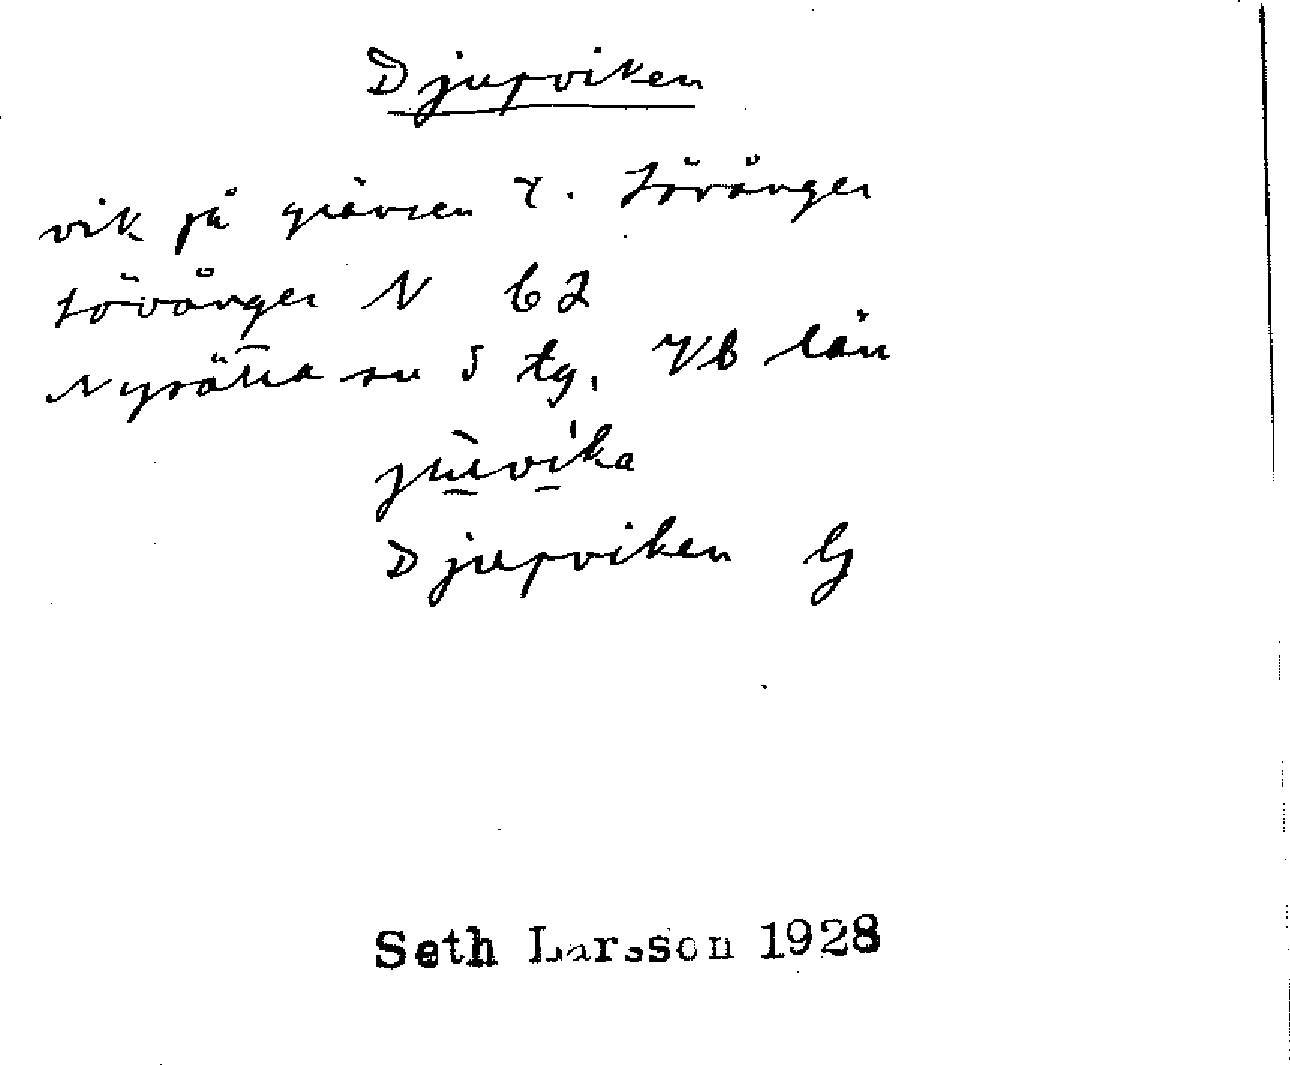 Djupviken
vik på gränsen t. Lövånger
Lövånger N 62
Nysätra sn S tg. Vb län
Djupviken G
Seth Larsson 1928